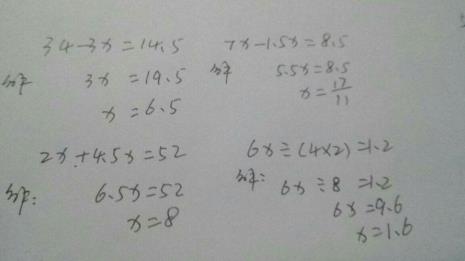 34-3x=14.5
解 3x=19.5
x=6.5
7x-1.5x=8.5
解 5.5x=8.5
x=17/11
2x+4.5x=52
解: 6.5x=52
x=8
6x÷(4×2)=1.2
解: 6x÷8=1.2
6x=9.6
x=1.6